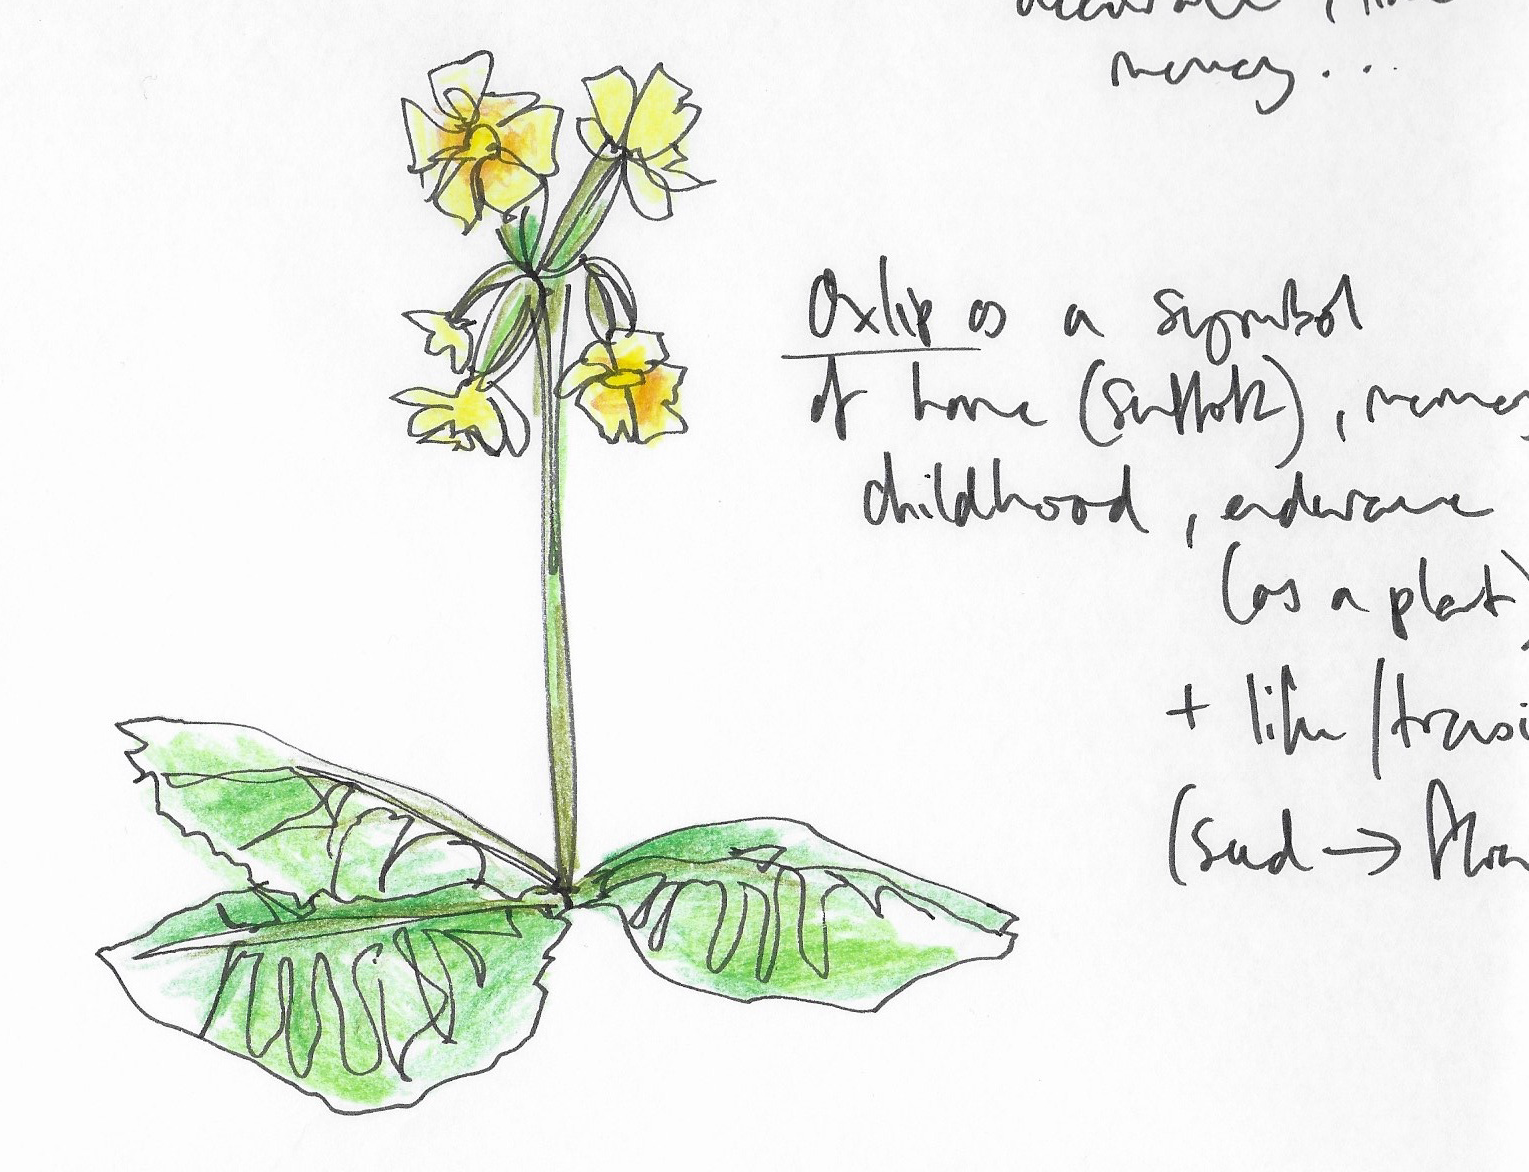 memory...
Oxlip as a symbol
of home (Suffolk), memory
childhood, endurance
(as a plant)
+ life/transi
(seed → flow